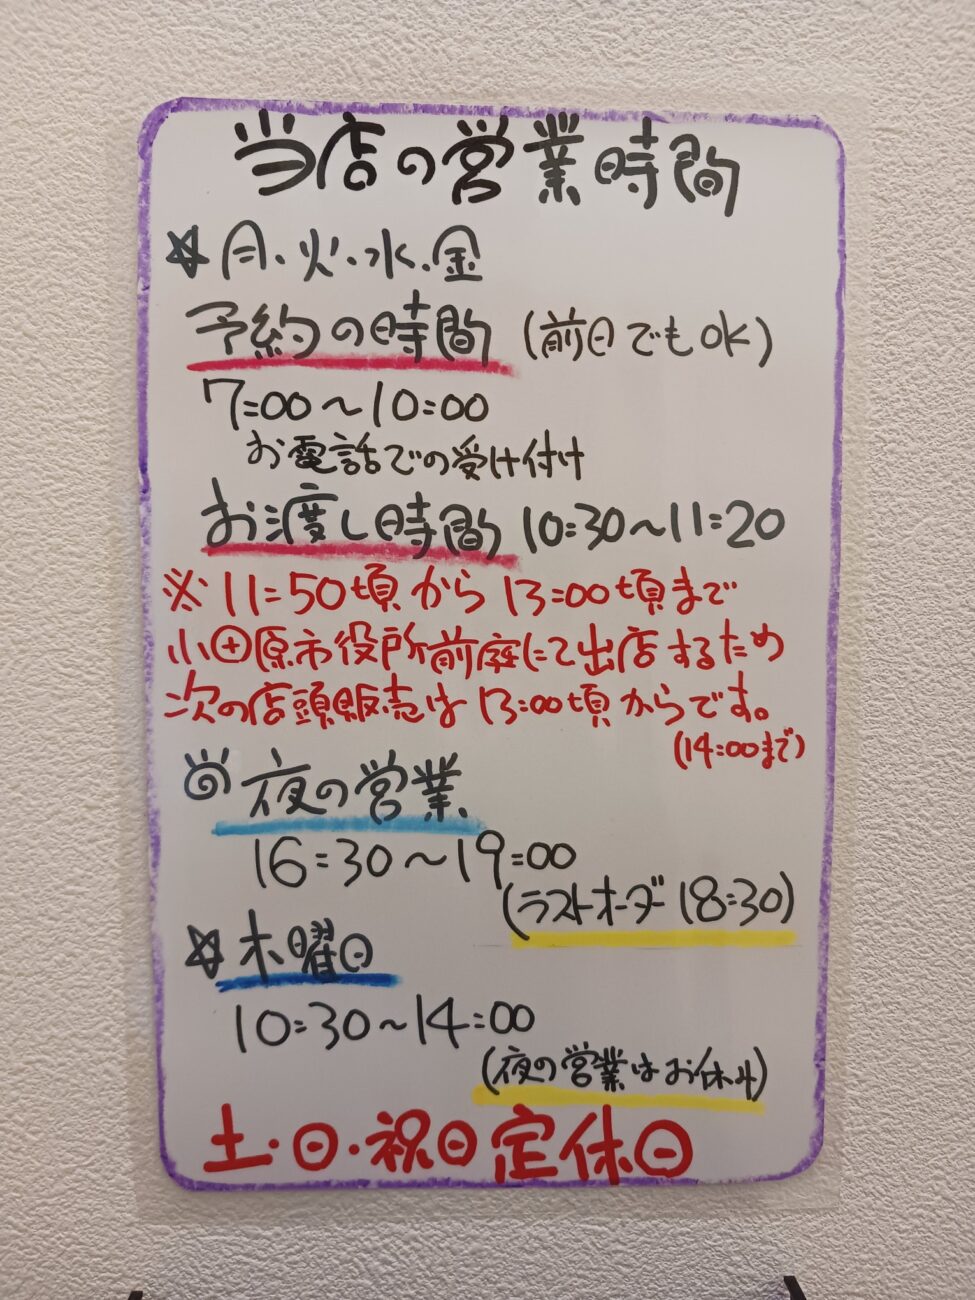 当店の営業時間
☆月・火・水・金
予約の時間 (前日でもOK)
7:00〜10:00
お電話での受け付け
お渡し時間 10:30〜11:20
※11:50頃から13:00頃まで
小田原市役所前庭にて出店するため
次の店頭販売は13:00頃からです。
(14:00まで)
夜の営業
16:30〜19:00
(ラストオーダー18:30)
☆木曜日
10:30〜14:00
(夜の営業はお休み)
土・日・祝日定休日